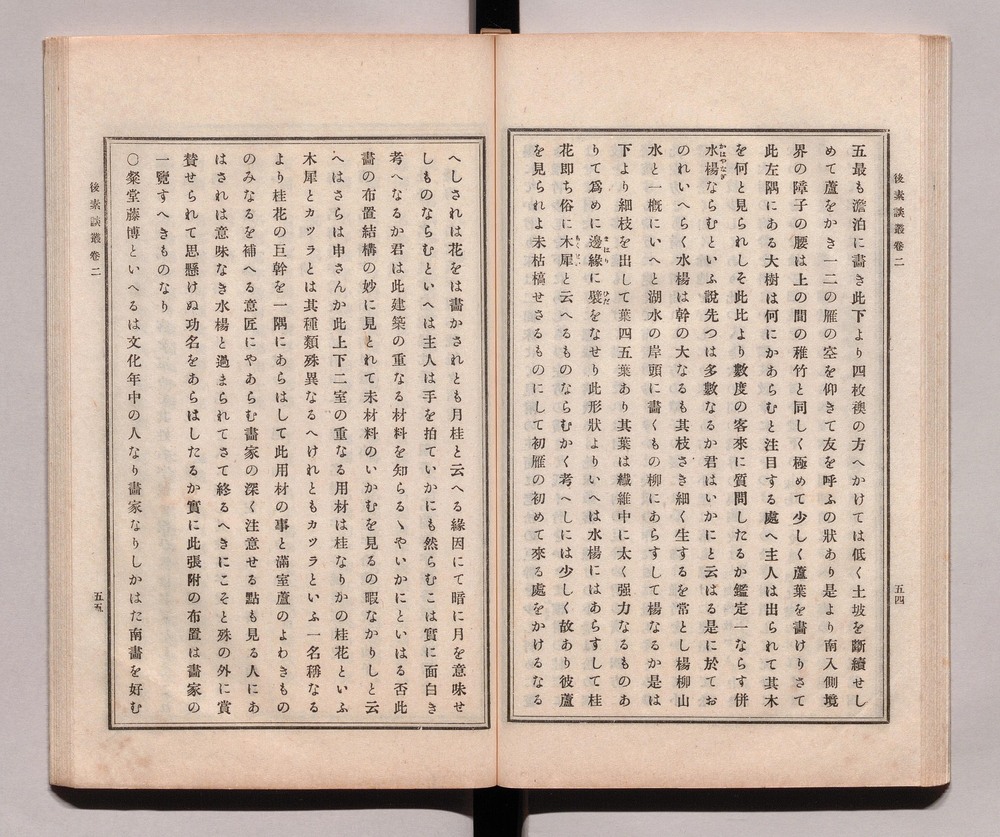 後素談叢卷二
五四
五最も澹泊に畵き此下より四枚襖の方へかけては低く土坡を斷續せし
めて蘆をかき一二の雁の空を仰きて友を呼ふの狀あり是より南入側境
界の障子の腰は上の間の稚竹と同しく極めて少しく蘆葉を畵けりさて
此左隅にある大樹は何にかあらむと注目する處へ主人は出られて其木
を何と見られしそ此比より數度の客來に質問したるか鑑定一ならす併
水楊ならむといふ說先つは多數なるか君はいかにと云はる是に於てお
かはやなぎ
のれいへらく水楊は幹の大なるも其枝さき細く生するを常とし楊柳山
水と一槪にいへと湖水の岸頭に畵くもの柳にあらすして楊なるか是は
下より細枝を出して葉四五葉あり其葉は纖維中に太く强力なるものあ
りて爲めに邊緣に襞をなせり此形狀よりいへは水楊にはあらすして桂
まはり
ひだ
花即ち俗に木犀と云へるものならむかく考へしには少しく故あり彼蘆
もくせい
を見られよ未枯槁せさるものにして初雁の初めて來る處をかけるなる
へしされは花をは畵かされとも月桂と云へる緣因にて暗に月を意味せ
しものならむといへは主人は手を拍ていかにも然らむこは實に面白き
考へなるか君は此建築の重なる材料を知らるゝやいかにといはる否此
畵の布置結構の妙に見とれて未材料のいかむを見るの暇なかりしと云
へはさらは申さんか此上下二室の重なる用材は桂なりかの桂花といふ
木犀とカツラとは其種類殊異なるへけれともカツラといふ一名稱なる
より桂花の巨幹を一隅にあらはして此用材の事と滿室蘆のよわきもの
のみなるを補へる意匠にやあらむ畵家の深く注意せる點も見る人にあ
はされは意味なき水楊と過まられてさて終るへきにこそと殊の外に賞
贊せられて思懸けぬ功名をあらはしたるか實に此張附の布置は畵家の
一覽すへきものなり
○粲堂藤博といへるは文化年中の人なり畵家なりしかはた南畵を好む
後素談叢卷二
五五